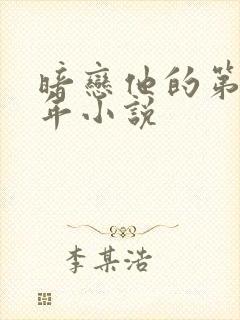 暗戀他的第
年小説
李某浩